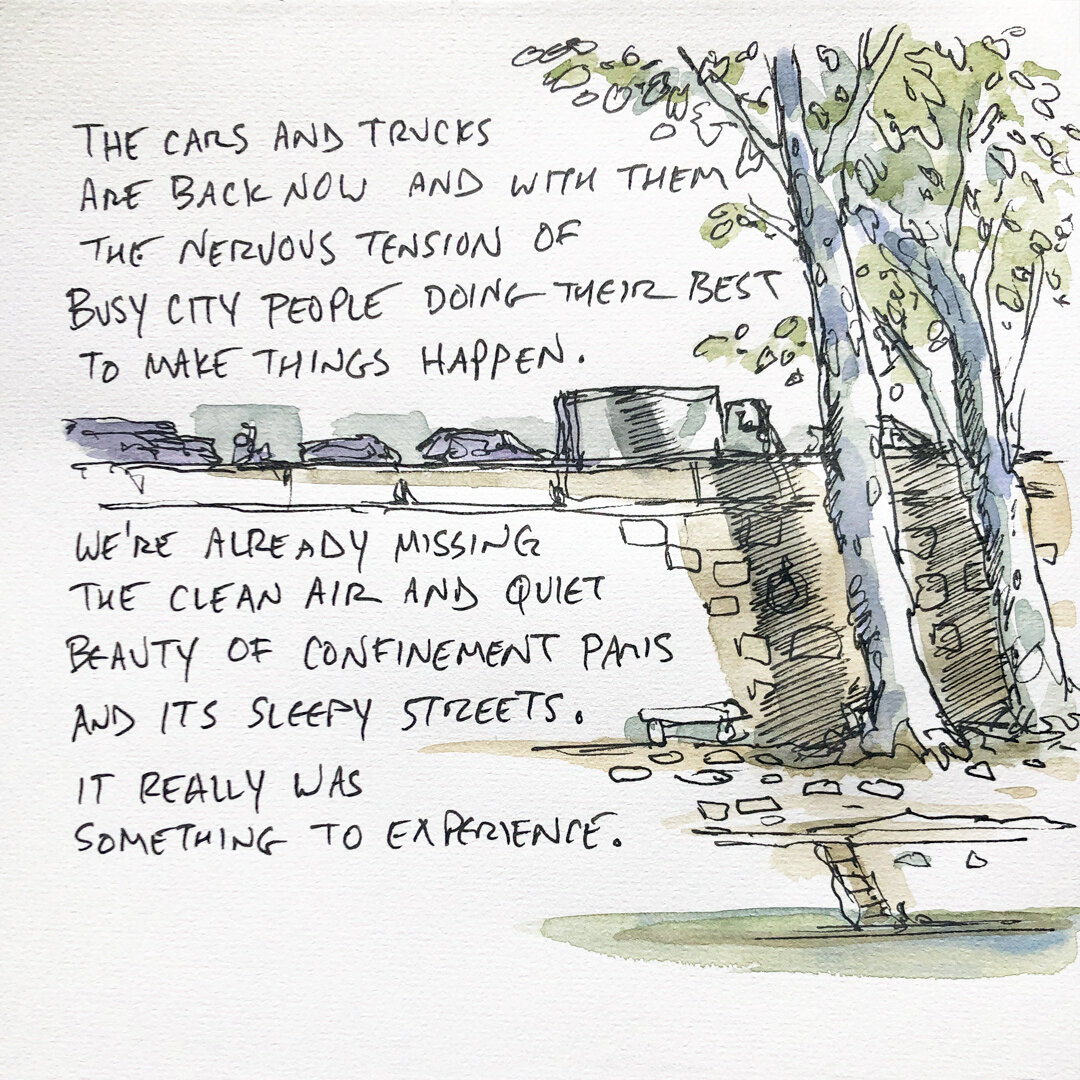 THE CARS AND TRUCKS
ARE BACK NOW AND WITH THEM
THE NERVOUS TENSION OF
BUSY CITY PEOPLE DOING THEIR BEST
TO MAKE THINGS HAPPEN.
WE'RE ALREADY MISSING
THE CLEAN AIR AND QUIET
BEAUTY OF CONFINEMENT PARIS
AND ITS SLEEPY STREETS.
IT REALLY WAS
SOMETHING TO EXPERIENCE.